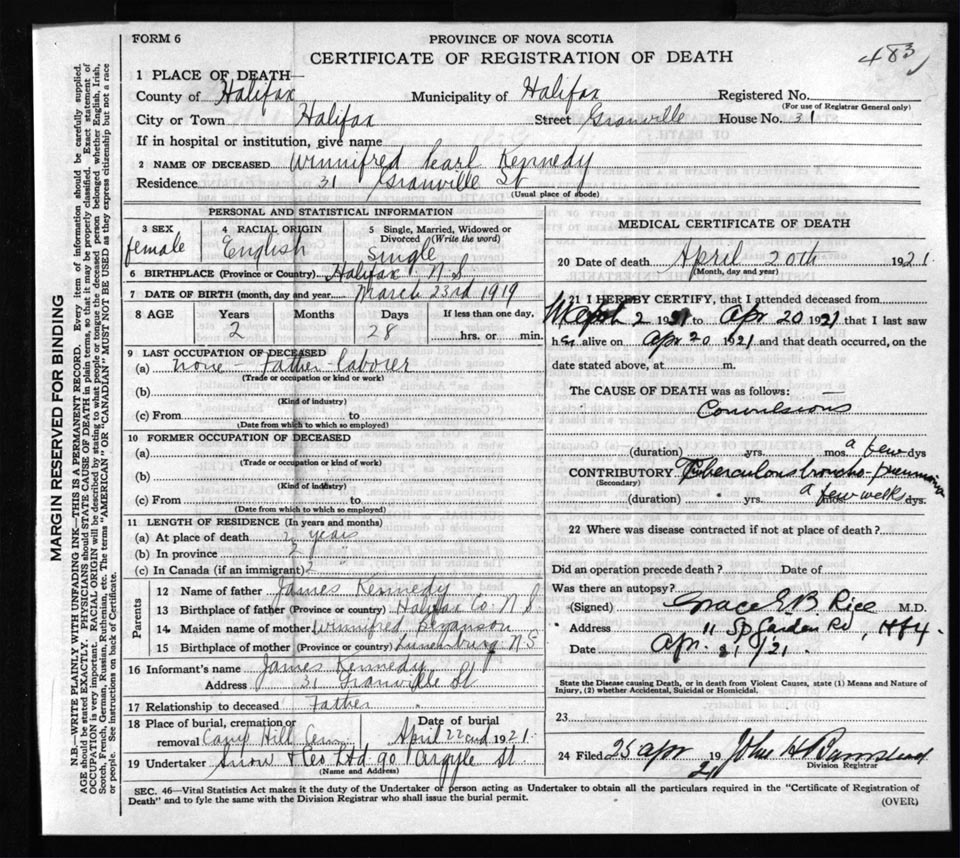 FORM 6
PROVINCE OF NOVA SCOTIA
483
CERTIFICATE OF REGISTRATION OF DEATH
1 PLACE OF DEATH—
County of Halifax Municipality of Halifax Registered No.
(For use of Registrar General only)
City or Town Halifax Street Granville House No. 31
If in hospital or institution, give name
2 NAME OF DECEASED Winnifred Pearl Kennedy
Residence 31 Granville St
(Usual place of abode)
PERSONAL AND STATISTICAL INFORMATION
3 SEX 4 RACIAL ORIGIN 5 Single, Married, Widowed or
Divorced (Write the word)
female English Single
6 BIRTHPLACE (Province or Country) Halifax N.S
7 DATE OF BIRTH (month, day and year March 23rd 1919
8 AGE Years Months Days If less than one day.
2 28 hrs. or min.
9 LAST OCCUPATION OF DECEASED
(a) none - Father - laborer
(Trade or occupation or kind or work)
(b)
(Kind of industry)
(c) From to
(Date from which to which so employed)
10 FORMER OCCUPATION OF DECEASED
(a)
(Trade or occupation or kind of work)
(b)
(Kind of industry)
(c) From to
(Date from which to which so employed)
11 LENGTH OF RESIDENCE (In years and months)
(a) At place of death 2 years
(b) In province 2 "
(c) In Canada (if an immigrant) 2
Parents
12 Name of father James Kennedy
13 Birthplace of father (Province or country) Halifax Co. N S
14 Maiden name of mother Winnifred
15 Birthplace of mother (Province or country) Lunenburg N S
16 Informant's name James Kennedy
Address 31 Granville St
17 Relationship to deceased Father
18 Place of burial, cremation or Date of burial
removal Camp Hill Cem April 22nd 1921
19 Undertaker Snow & Co Ltd 90 Argyle St
(Name and Address)
MEDICAL CERTIFICATE OF DEATH
20 Date of death April 20th 1921
(Month, day and year)
21 I HEREBY CERTIFY, that I attended deceased from
2 1921 to Apr 20 1921 that I last saw
her alive on Apr 20 1921 and that death occurred, on the
date stated above, at m.
The CAUSE OF DEATH was as follows:
Convulsions
(duration) yrs. mos. a few dys
CONTRIBUTORY Tuberculous broncho-pneumonia
(Secondary)
(duration) yrs. a few weeks dys.
22 Where was disease contracted if not at place of death?
Did an operation precede death? Date of
Was there an autopsy?
(Signed) Grace E B Rice M.D.
Address 11 Sp Garden Rd, Hfx.
Date Apr. 21/21.
State the Disease causing Death, or in death from Violent Causes, state (1) Means and Nature of
Injury, (2) whether Accidental, Suicidal or Homicidal.
23
24 Filed 25 Apr 1921 John H Barnstead
Division Registrar
SEC. 46—Vital Statistics Act makes it the duty of the Undertaker or person acting as Undertaker to obtain all the particulars required in the "Certificate of Registration of
Death" and to fyle the same with the Division Registrar who shall issue the burial permit.
(OVER)
MARGIN RESERVED FOR BINDING
N.B.—WRITE PLAINLY WITH UNFADING INK—THIS IS A PERMANENT RECORD. Every item of information should be carefully supplied.
AGE should be stated EXACTLY. PHYSICIANS should STATE CAUSE OF DEATH in plain terms, so that it may be properly classified. Exact statement of
OCCUPATION is very important. RACIAL ORIGIN will be described by stating to what people or tongue the deceased person belonged, whether English, Irish,
Scotch, French, German, Russian, Ruthenian, etc. The terms "AMERICAN" OR "CANADIAN" MUST NOT BE USED as they express citizenship but not a race
or people. See instructions on back of Certificate.